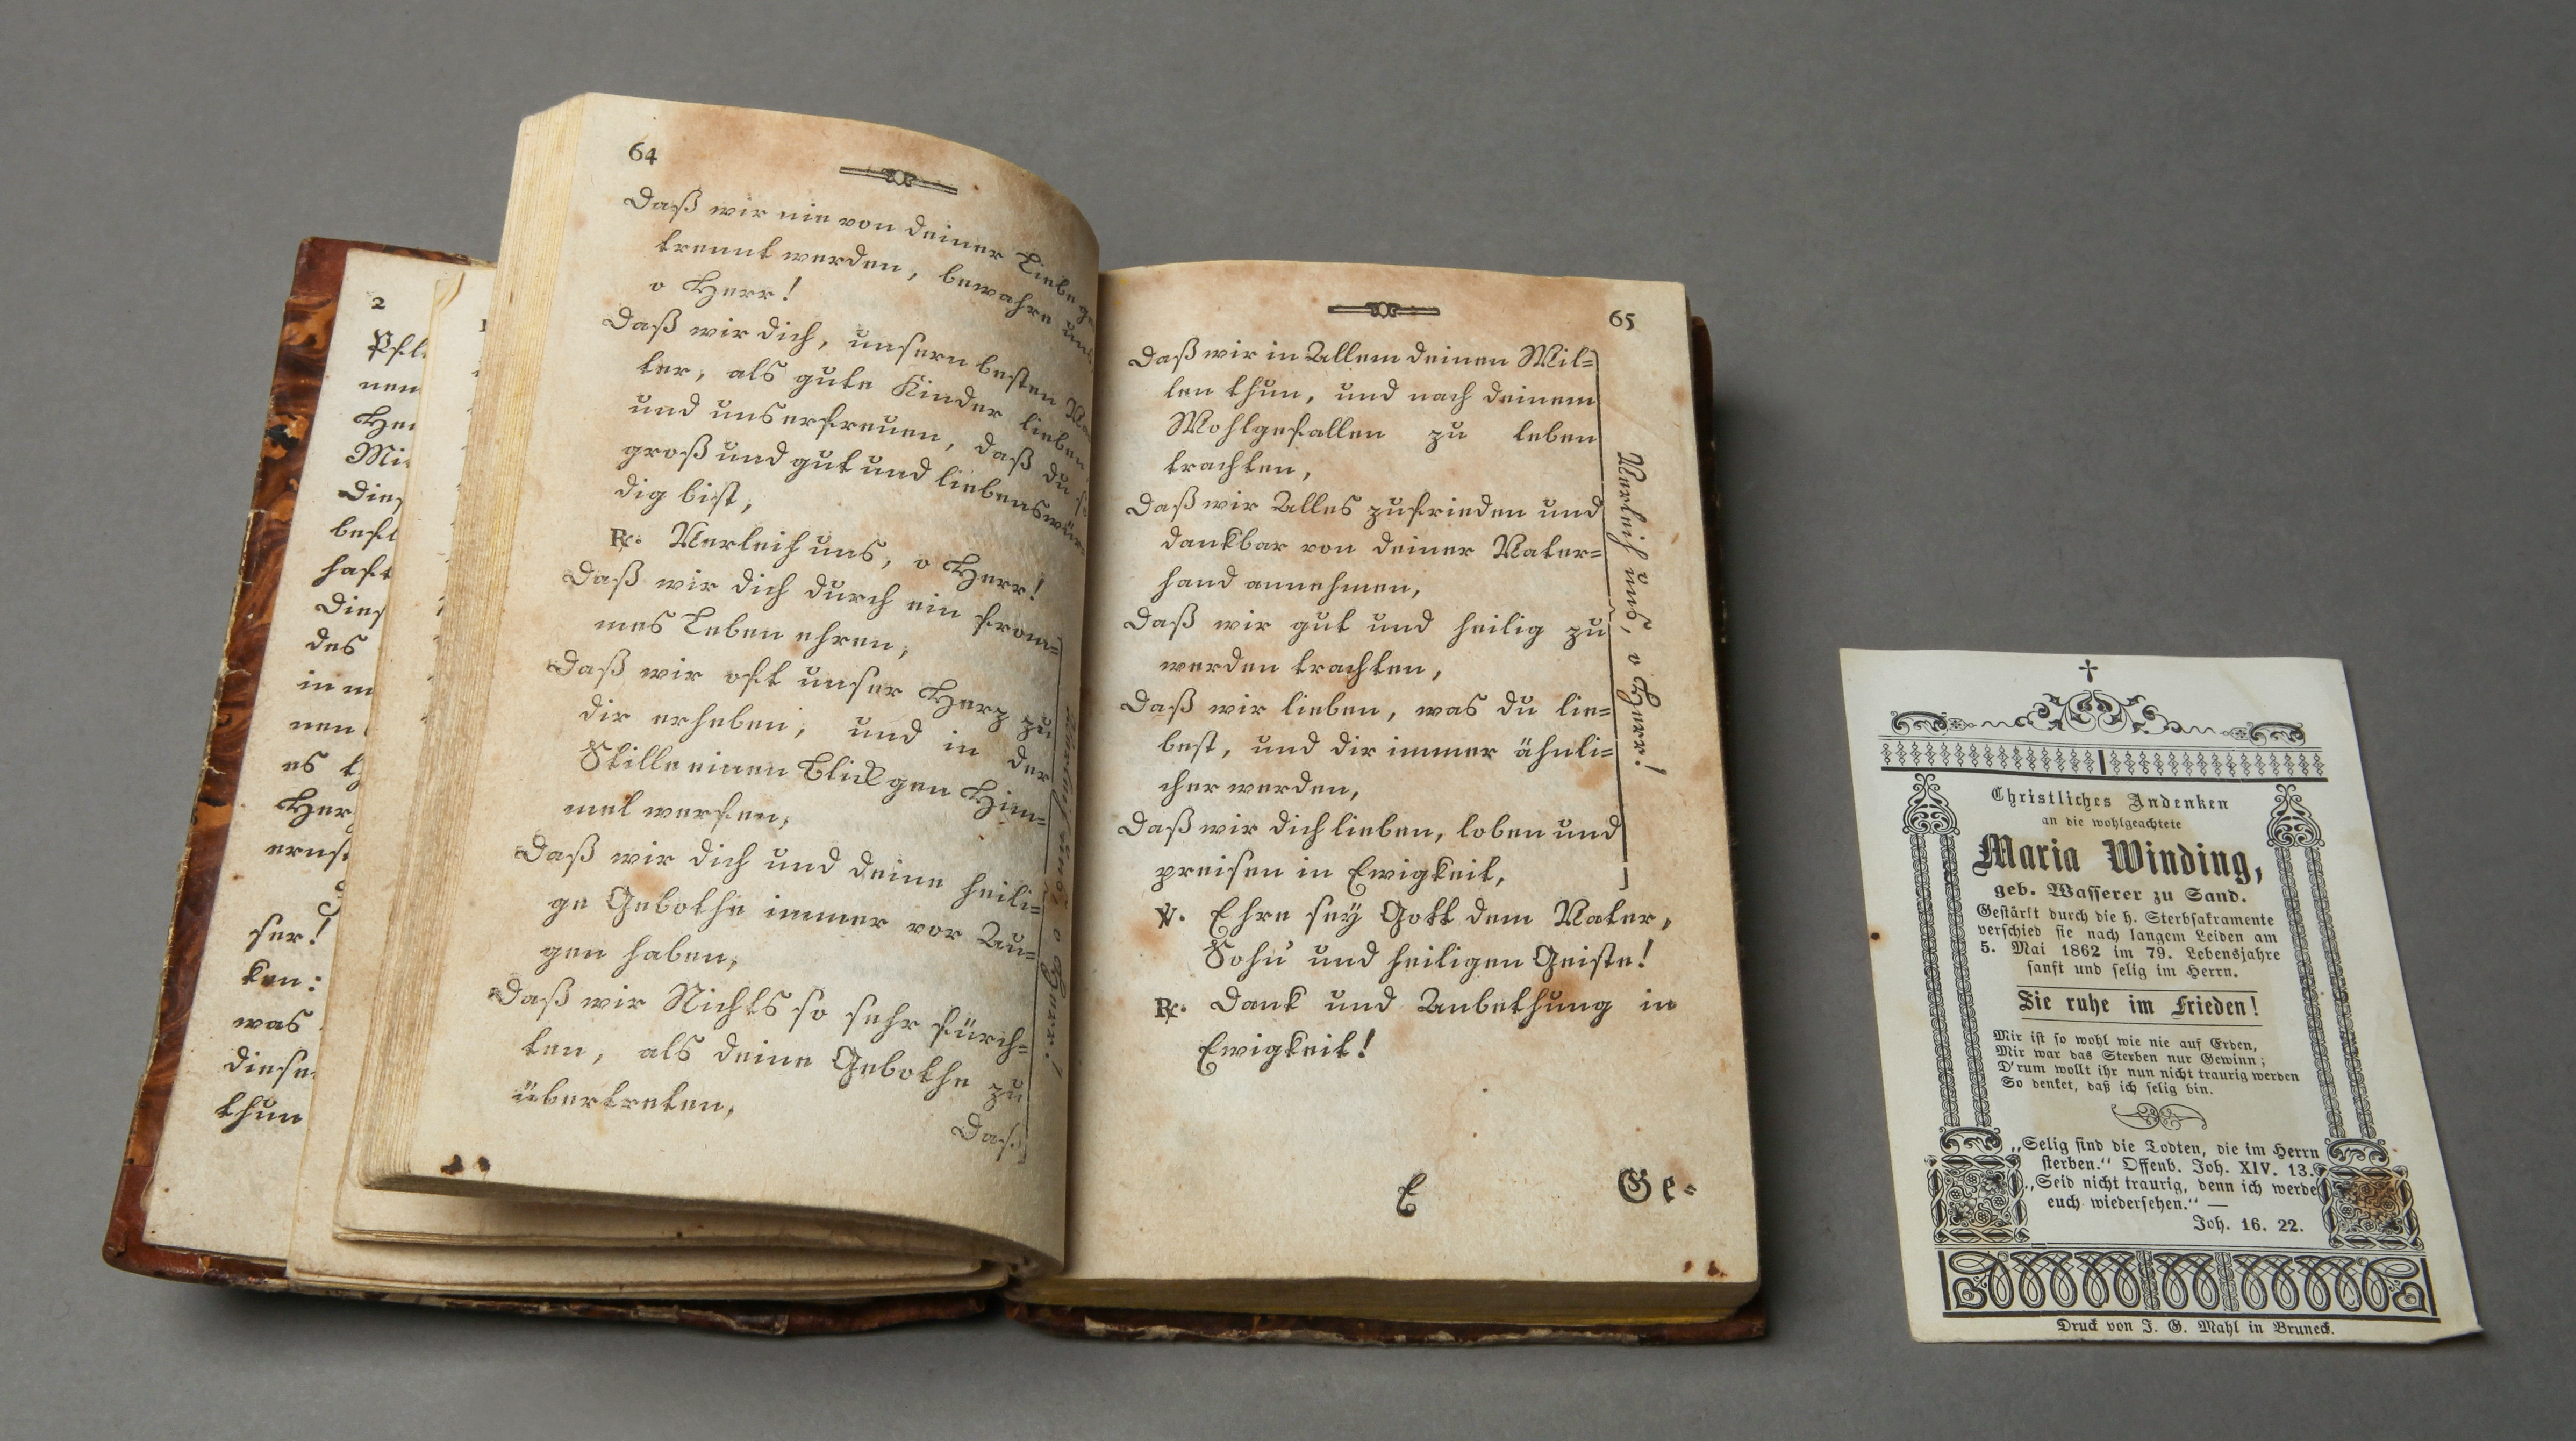 2
Pfl
nen
Her
Mi
Dies
best
haft
Dies
des
in m
nen
es
Her
ernst
ser!
ken:
was
diese
thun
64
Daß wir nie von deiner Liebe ge
trennt werden, bewahre uns
o Herr!
Daß wir dich, unsern besten Va
ter, als gute Kinder lieben
und uns erfreuen, daß du so
groß und gut und liebenswür
dig bist,
℟. Verleih uns, o Herr!
Daß wir dich durch ein from=
mes Leben ehren,
Daß wir oft unser Herz zu
dir erheben, und in der
Stille einen Blick gen Him=
mel werfen,
Daß wir dich und deine heili=
ge Gebothe immer vor Au=
gen haben,
Daß wir Nichts so sehr fürch=
ten, als deine Gebothe zu
übertreten,
Daß
Verleih uns, o Herr!
65
Daß wir in Allem deinen Wil=
len thun, und nach deinem
Wohlgefallen zu leben
trachten,
Daß wir Alles zufrieden und
dankbar von deiner Vater=
hand annehmen,
Daß wir gut und heilig zu
werden trachten,
Daß wir lieben, was du lie=
best, und dir immer ähnli=
cher werden,
Daß wir dich lieben, loben und
preisen in Ewigkeit,
Verleih uns, o Herr!
℣. Ehre sey Gott dem Vater,
Sohn und heiligen Geiste!
℟. Dank und Anbethung in
Ewigkeit!
E
Ge=
Christliches Andenken
an die wohlgeachtete
Maria Winding,
geb. Wasserer zu Sand.
Gestärkt durch die h. Sterbsakramente
verschied sie nach langem Leiden am
5. Mai 1862 im 79. Lebensjahre
sanft und selig im Herrn.
Sie ruhe im Frieden!
Mir ist so wohl wie nie auf Erden,
Mir war das Sterben nur Gewinn;
D'rum wollt ihr nun nicht traurig werden
So denket, daß ich selig bin.
„Selig sind die Todten, die im Herrn
sterben.“ Offenb. Joh. XIV. 13.
„Seid nicht traurig, denn ich werde
euch wiedersehen.“ —
Joh. 16. 22.
Druck von J. G. Mahl in Bruneck.